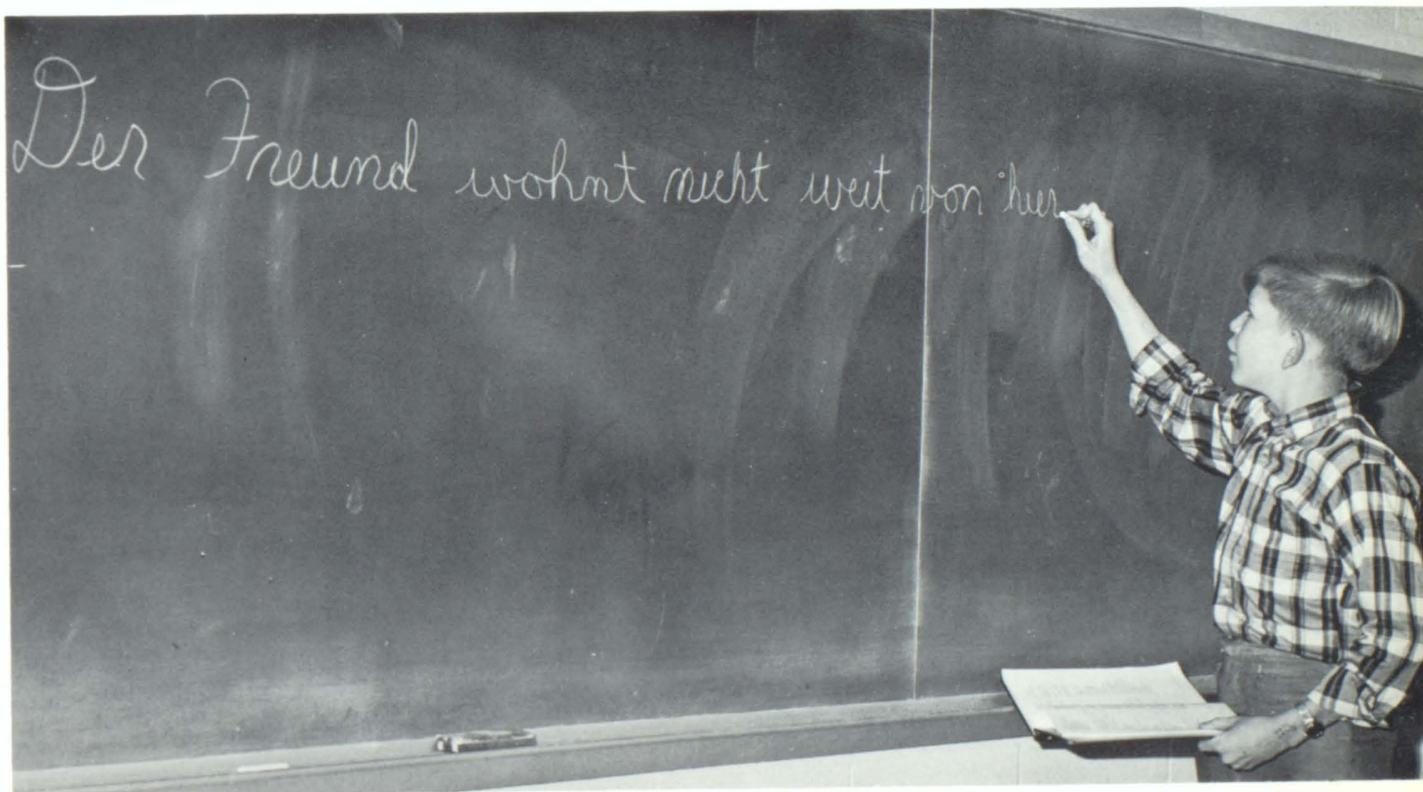 Der Freund wohnt nicht weit von hier